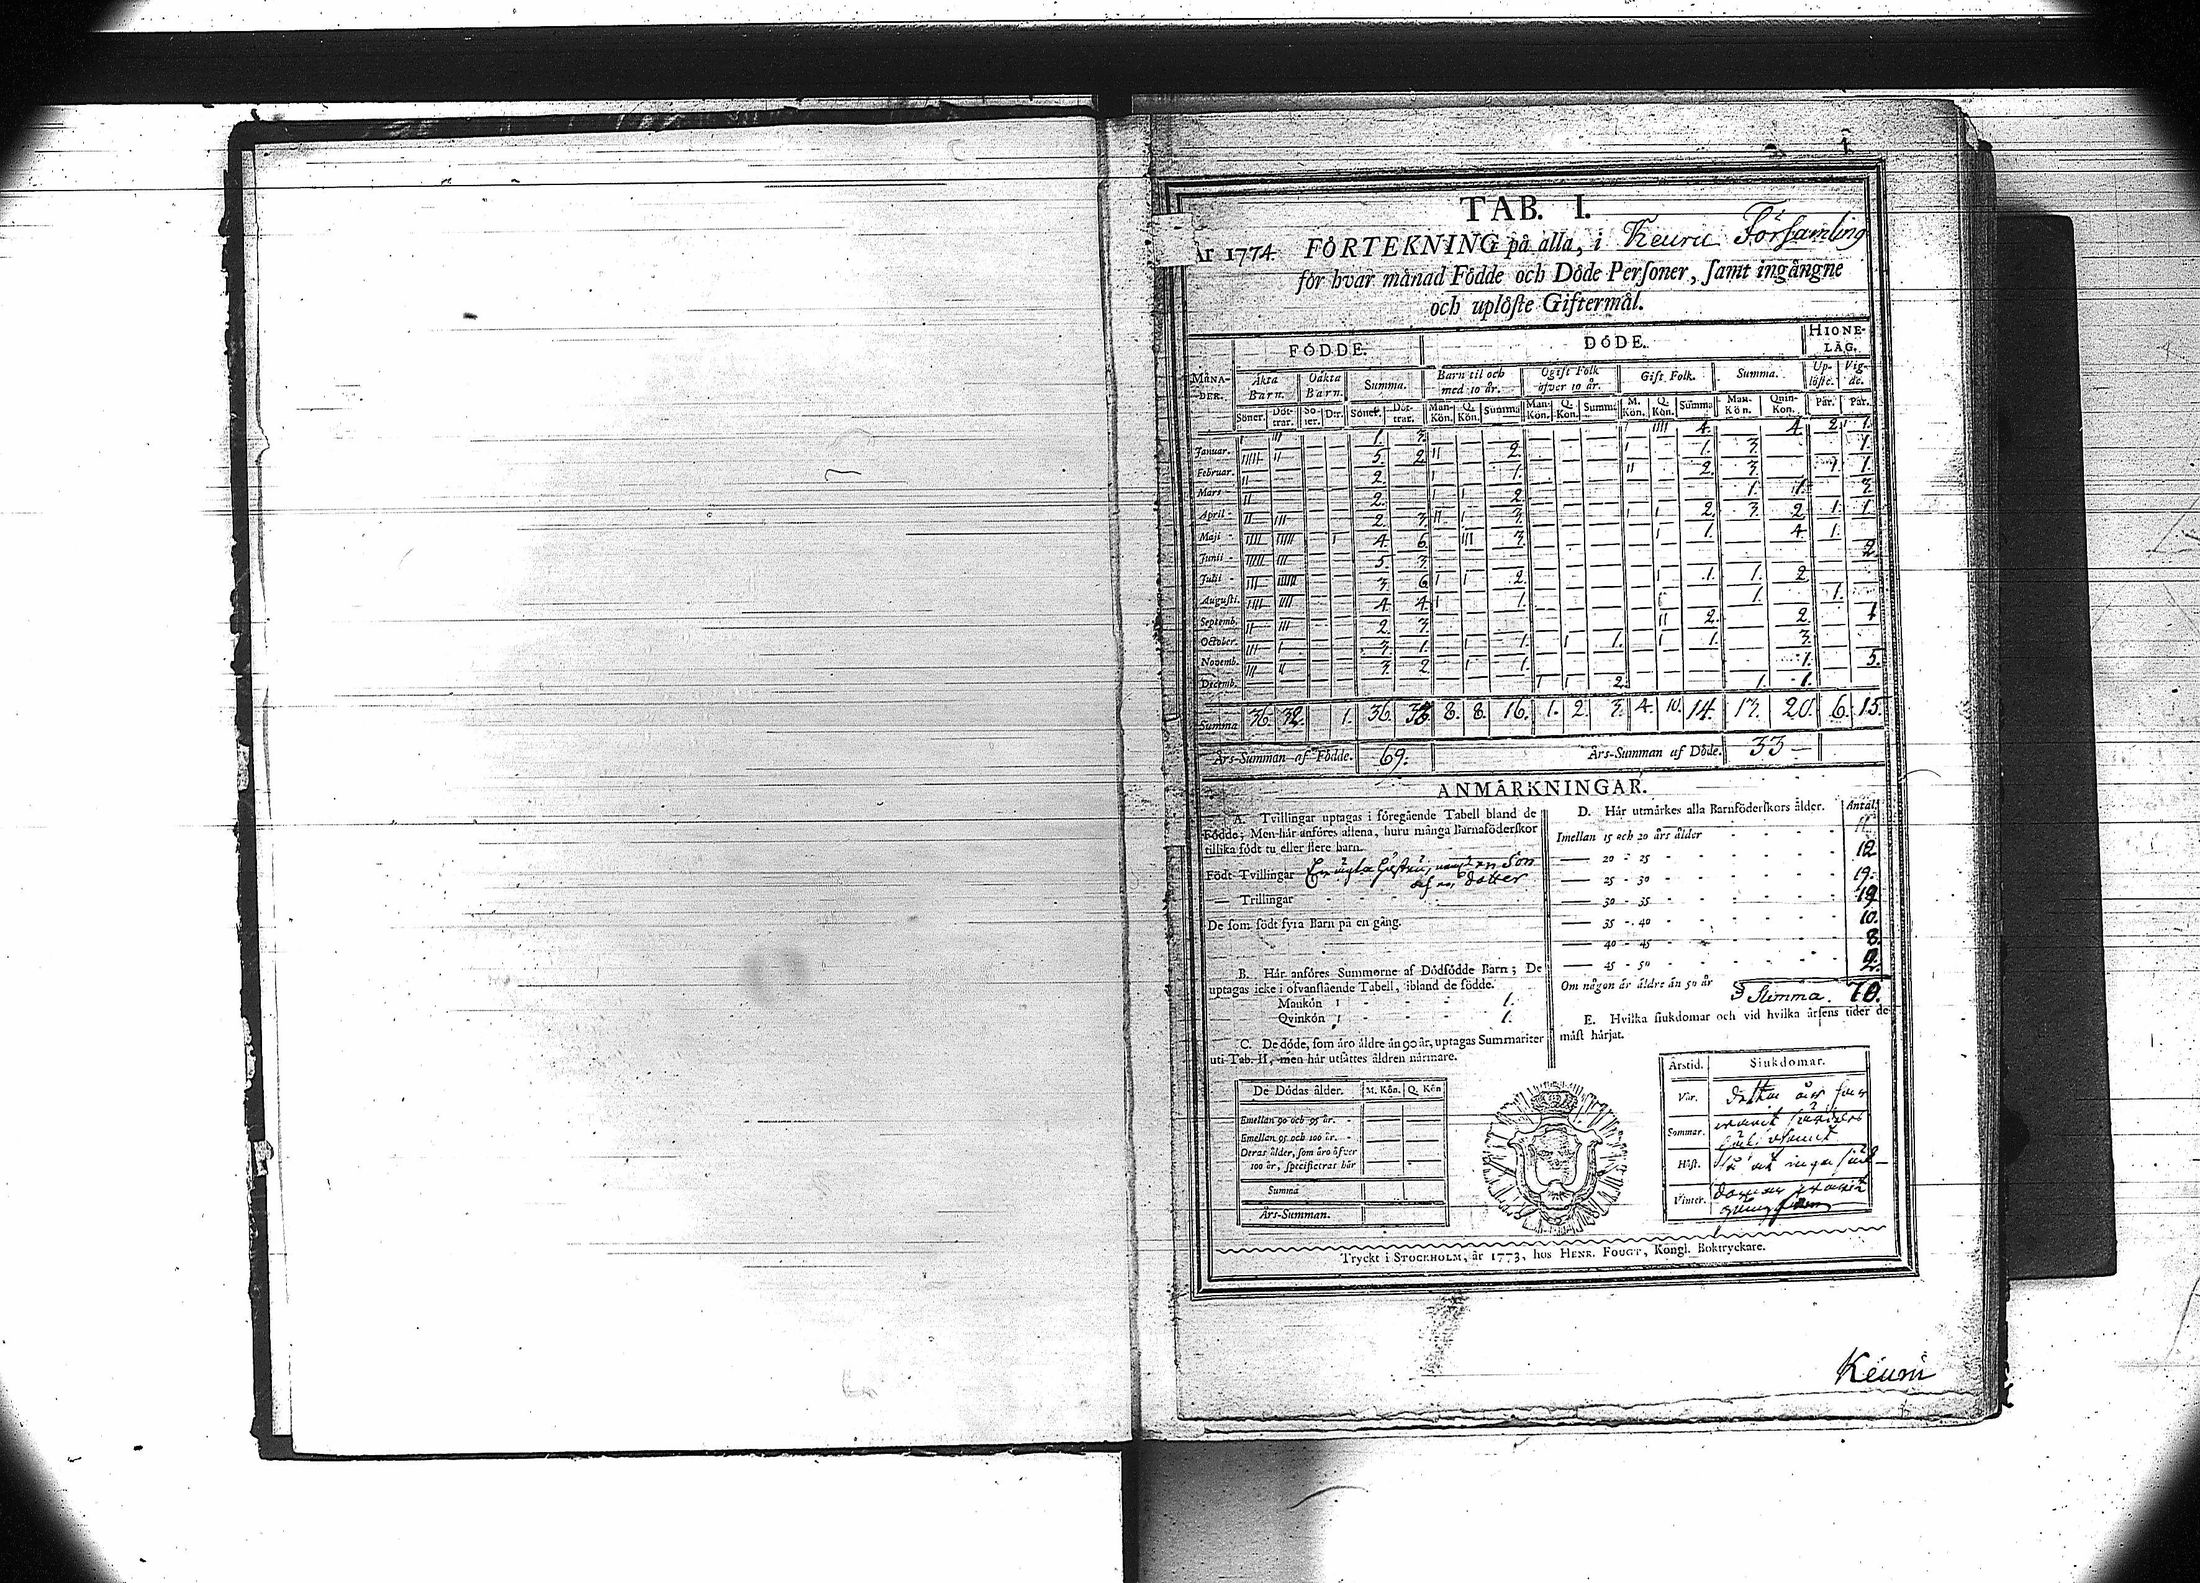 1
TAB. I.
År 1774 FÖRTEKNING på alla, i Keuru Församling
för hvar månad Födde och Döde Personer, samt ingångne
och uplöste Giftermål.
MÅNADER. FÖDDE. DÖDE. HIONELAG.
Äkta Barn. Oäkta Barn. Summa. Barn til och med 10 år. Ogift Folk öfver 10 år. Gift Folk. Summa. Uplöste. Vigde.
Söner. Döttrar. Söner. D:r. Söner. Döttrar. Mankön. Q. Kön. Summa Mankön. Q. Kön. Summa M. Kön. Q. Kön. Summa Man Kön. Quinkon. Pår. Pår.
Januar. I III 1. 3. I IIII 4. 4. 2 1.
Februar. IIIII II 5. 2 II 2. I 1. 3. 1.
Mars II 2. I 1. II 2. 3. 1. 1.
April II 2. I I 2. 1. 1. 3.
Maji II III 2. 3. II I 3. I I 2. 3. 2. 1. 1.
Junii IIII IIIII I 4. 6. III 3. I 1. 4. 1.
Julii IIIII III 5. 3. 2.
Augusti. III IIIIII 3. 6. I I 2. I 1. 1. 2.
Septemb. IIII IIII 4. 4. I 1. 1. 1.
October. II III 2. 3. II 2. 2. 1
Novemb. III I 3. 1. I 1. I 1. I 1. 3.
Decemb. III II 3. 2 I 1. I I 2. 1. 1. 5.
Summa 36. 32. 1. 36. 33 8. 8. 16. 1. 2. 3. 4. 10. 14. 13. 20. 6. 15.
Års-Summan af Födde. 69. Års-Summan af Döde. 33
ANMÄRKNINGAR.
A. Tvillingar uptagas i föregående Tabell bland de
Födde; Men här anföres allena, huru många Barnaföderskor
tillika födt tu eller flere barn.
Födt Tvillingar en Son
dotter
— Trillingar
De som födt fyra Barn på en gång.
B. Här anföres Summorne af Dödfödde Barn; De
uptagas icke i ofvanstående Tabell, ibland de födde.
Mankön 1 - - - - 1.
Qvinkön 1 - - - - 1.
C. De döde, som äro äldre än 90 år, uptagas Summariter
uti Tab. II, men här utsättes åldren närmare.
De Dödas ålder. M. Kön. Q. Kön
Emellan 90 och 95 år.
Emellan 95 och 100 år.
Deras ålder, som äro öfver
100 år, specificeras här
Summa
Års-Summan.
D. Här utmärkes alla Barnföderskors ålder. Antal.
Imellan 15 och 20 års ålder
— 20 - 25 12
— 25 - 30 19.
— 30 - 35 19
— 35 - 40 10.
— 40 - 45 8.
— 45 - 50 2.
Om någon är äldre än 50 år
Summa. 70.
E. Hvilka siukdomar och vid hvilka årsens tider de
mäst härjat.
Årstid. Siukdomar.
Vår. detta
Sommar.
Höst. så at inga
Vinter.
Tryckt i STOCKHOLM, år 1773, hos HENR. FOUGT, Kongl. Boktryckare.
Keuru